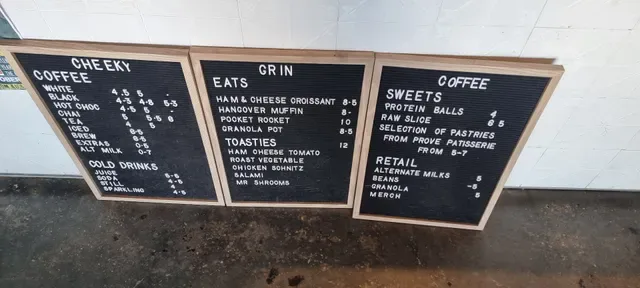 CHEEKY
COFFEE
WHITE 4.5 5 -
BLACK 4-3 4-8 5-3
HOT CHOC 4-5 5 -
CHAI
TEA
ICED
BREW
EXTRAS
ALT MILK 0-7
COLD DRINKS
JUICE
SODA
STILL
SPARKLING
GRIN
EATS
HAM & CHEESE CROISSANT 8-5
HANGOVER MUFFIN 8-
POCKET ROCKET 10
GRANOLA POT 8-5
TOASTIES 12
HAM CHEESE TOMATO
ROAST VEGETABLE
CHICKEN SCHNITZ
SALAMI
MR SHROOMS
COFFEE
SWEETS
PROTEIN BALLS 4
RAW SLICE 6 5
SELECTION OF PASTRIES
FROM PROVE PATISSERIE
FROM 5-7
RETAIL
ALTERNATE MILKS 5
BEANS
GRANOLA
MERCH